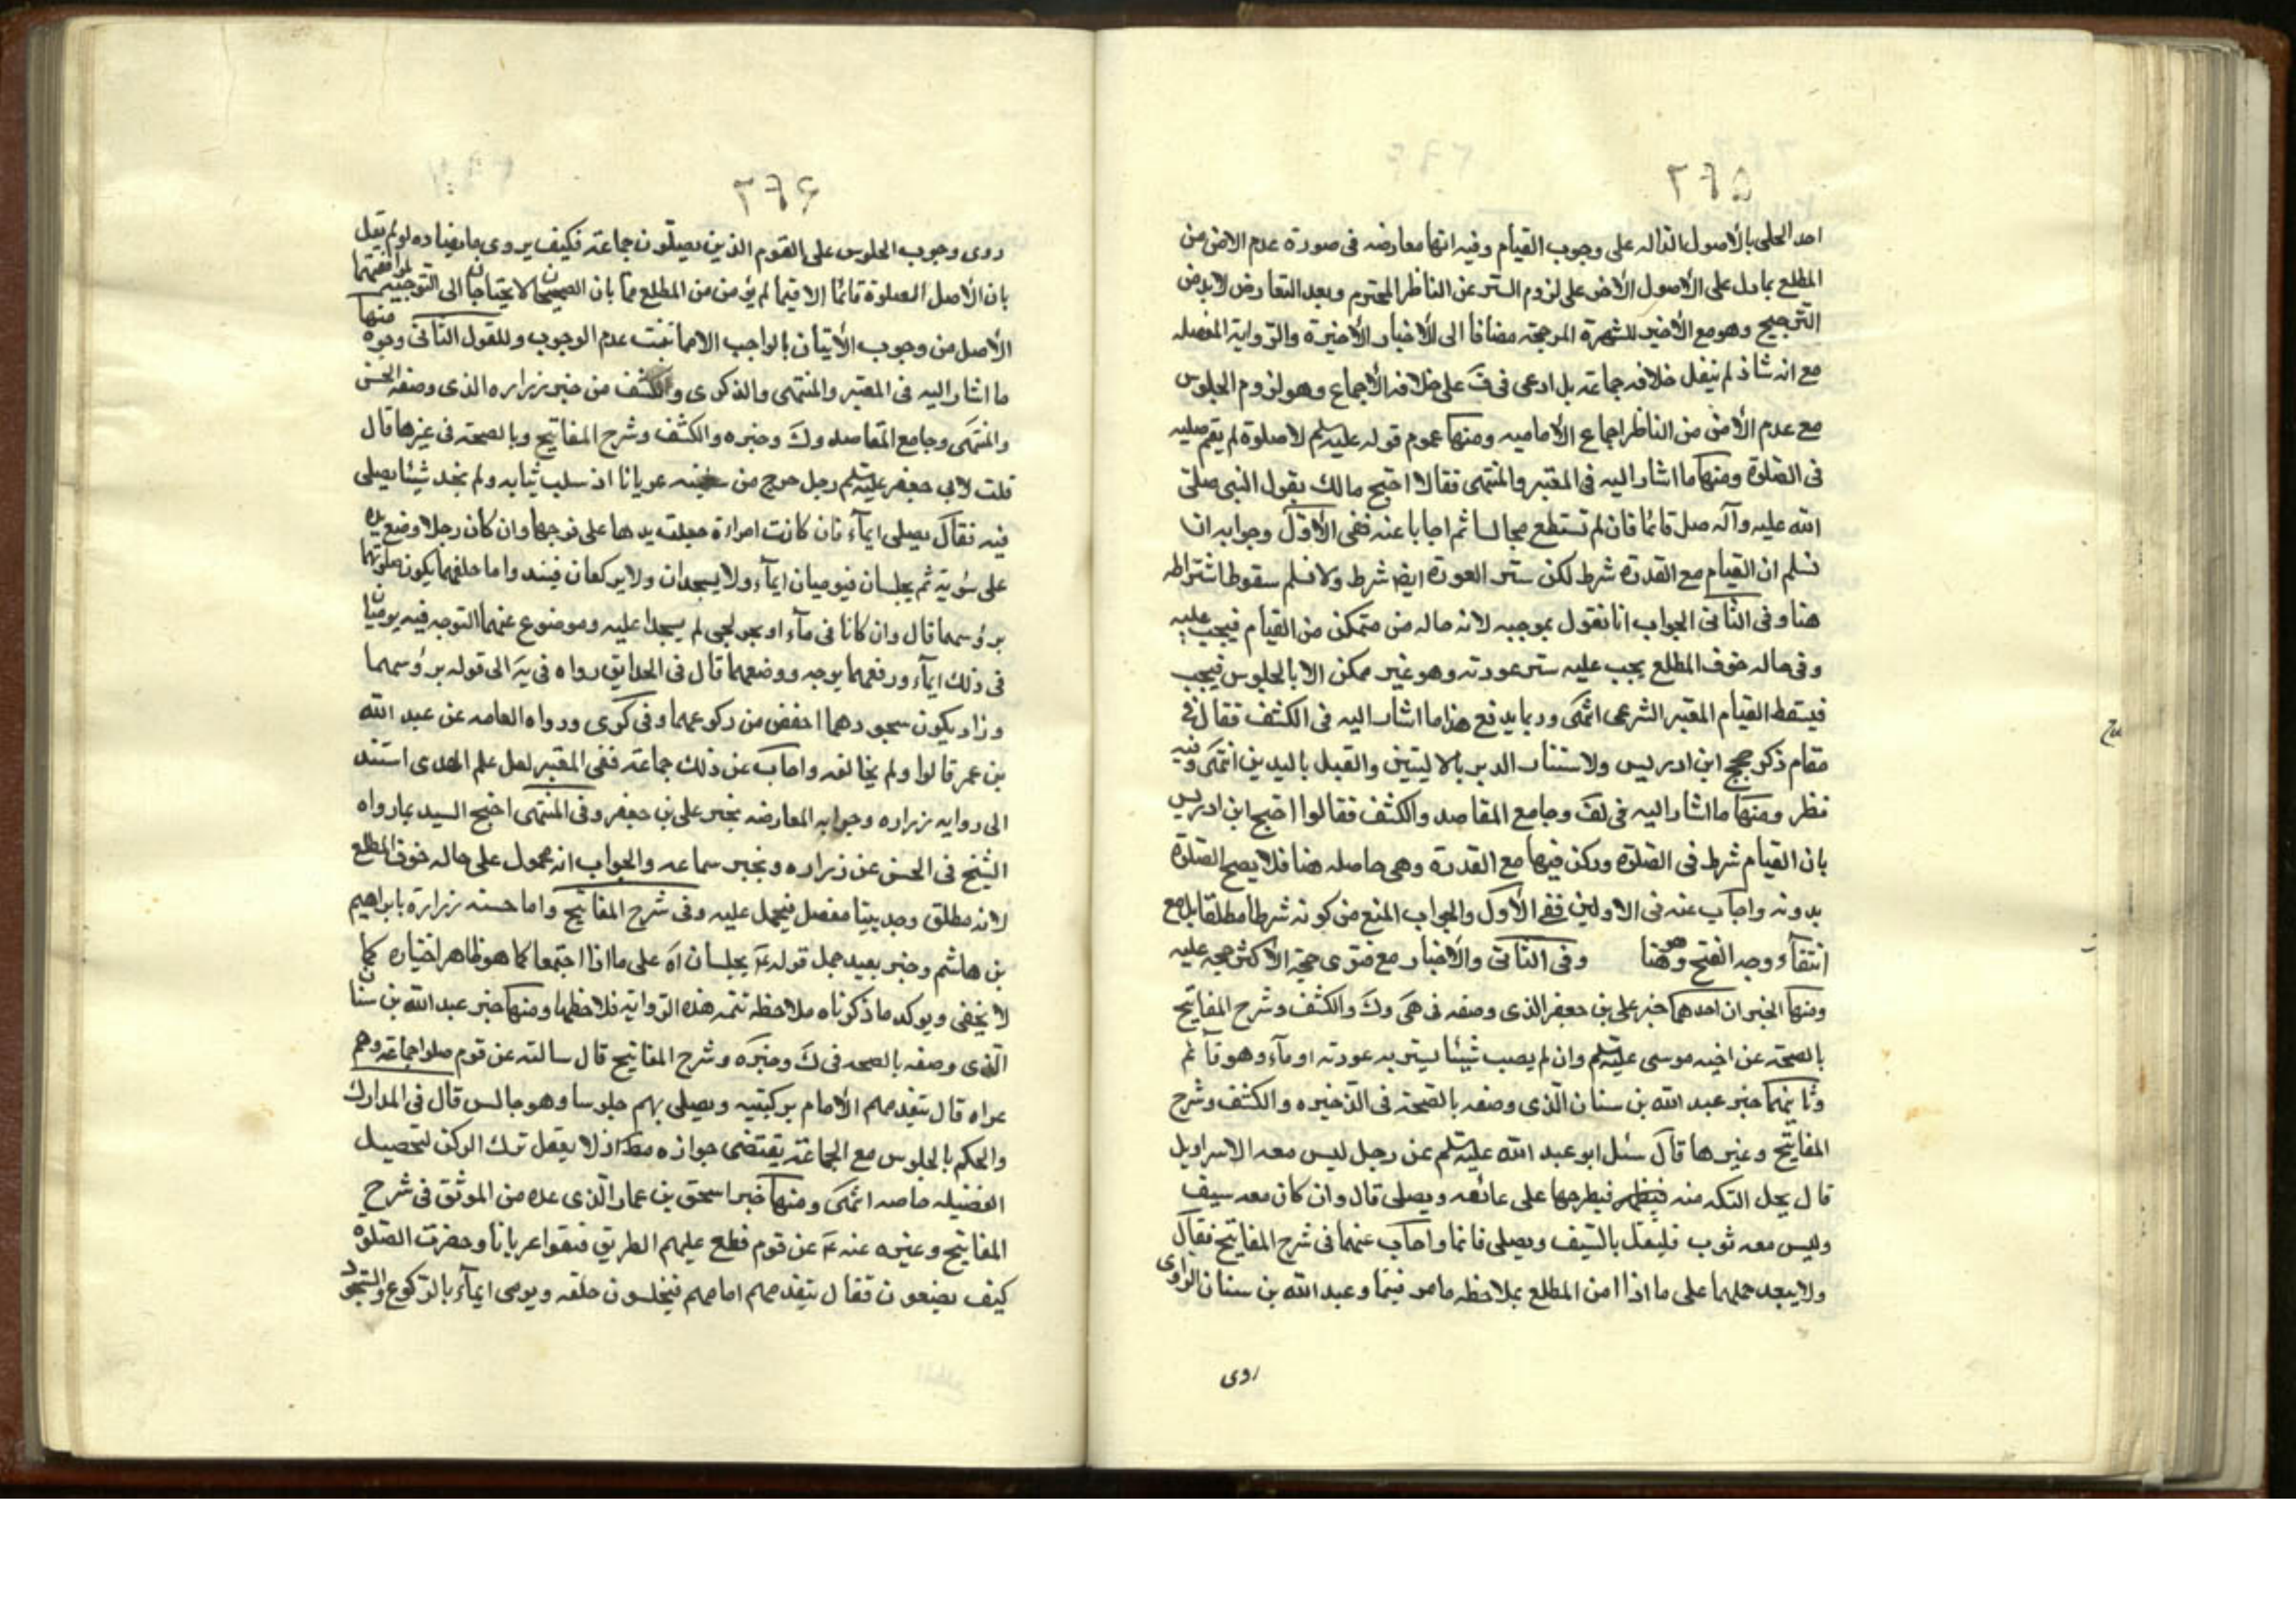 ٢٤٥
احد الحلى بالأصول الداله على وجوب القيام وفيه انها معارضه فى صورة عدم الامن من
المطلع بما دل على الأصول الأخر على لزوم الستر عن الناظر المحترم وبعد التعارض لابد من
الترجيح وهو مع الأخير للشهرة المرجحة مضافا الى الأخبار الأخيرة والرواية المفصله
مع انه شاذ لم ينقل خلافه جماعة بل ادعى فى ف على خلافه الأجماع وهو لزوم الجلوس
مع عدم الأمن من الناظر اجماع الأماميه ومنها عموم قوله عليه سلم لا صلوة لم يقم صلبه
فى الصلوة ومنها ما اشار اليه فى المعتبر والمنتهى فقالا احتج مالك بقول النبى صلى
الله عليه وآله صل قائما فان لم تستطع فجالسا ثم اجابا عنه ففى الأول وجوابه انا
نسلم ان القيام مع القدرة شرط لكن ستر العورة ايض شرط ولا نسلم سقوط اشتراطه
هنا وفى الثانى الجواب انا نقول بموجبه لانه حاله من متمكن من القيام فيجب عليه
وفى حاله خوف المطلع يجب عليه ستر عورته وهو غير ممكن الا بالجلوس فيجب
فيسقط القيام المعتبر الشرعى انتهى وربما يدفع هذا ما اشار اليه فى الكشف فقال فى
مقام ذكر حجج ابن ادريس ولاستتار الدبر بالاليتين والقبل باليدين انتهى وفيه
نظر ومنها ما اشار اليه فى لف وجامع المقاصد والكشف فقالوا احتج ابن ادريس
بان القيام شرط فى الصلوة وركن فيها مع القدرة وهى حاصله هنا فلا يصح الصلوة
بدونه واجاب عنه فى الاولين ففى الأول والجواب المنع من كونه شرطا مطلقا بل مع
انتفاء وجه القبح وهو هنا وفى الثانى والأخبار مع فتوى الأكثر حجه عليه
ومنها الخبران احدهما خبر على بن جعفر الذى وصفه فى هى وك والكشف وشرح المفاتيح
بالصحة عن اخيه موسى عليه سلم وان لم يصب شيئا يستر به عورته اومأ وهو قائم
وثانيهما خبر عبد الله بن سنان الذى وصفه بالصحة فى الذخيره والكشف وشرح
المفاتيح وغيرها قال سئل ابو عبد الله عليه سلم عن رجل ليس معه الا سراويل
قال يحل التكه منه فيطرحها على عاتقه ويصلى قال وان كان معه سيف
وليس معه ثوب فليتقلد بالسيف ويصلى قائما واجاب عنهما فى شرح المفاتيح فقال
ولا يبعد حملهما على ما اذا امن المطلع بملاحظه ما مر فيهما وعبد الله بن سنان الراوى
روى
٢٤۶
روى وجوب الجلوس على القوم الذين يصلون جماعة فكيف يروى ما يضاده لو لم يقل
بان الأصل الصلوة قائما الا فيما لم يؤمن من المطلع مما بان الصحيحان لا يحتاجان الى التوجيه لموافقتهما
الأصل من وجوب الأتيان بالواجب الا ما ثبت عدم الوجوب وللقول الثانى وجوه منها
ما اشار اليه فى المعتبر والمنتهى والذكرى والكشف من خبر زراره الذى وصفه الحسن
والمنتهى وجامع المقاصد وك وخيره والكشف وشرح المفاتيح وبالصحة فى غيرها قال
قلت لابى جعفر عليه سلم رجل خرج من سفينه عريانا اذ سلب ثيابه ولم يجد شيئا يصلى
فيه فقال يصلى ايماء فان كانت امراءة جعلت يدها على فرجها وان كان رجلا وضع يده
على سوئته ثم يجلسان فيوميان ايماء ولا يسجدان ولا يركعان فيبدو اما خلفهما يكون صلوتهما
برؤسهما قال وان كانا فى ماء او بحر لجى لم يسجدا عليه وموضوع عنهما التوجه فيه يوميان
فى ذلك ايماء ورفعهما يوجه ووضعهما قال فى الحدايق رواه فى يه الى قوله برؤسهما
وزاد يكون سجودهما اخفض من ركوعهما وفى كرى ورواه العامه عن عبد الله
بن عمر قالوا ولم يخالفه واجاب عن ذلك جماعة ففى المعتبر لعل علم الهدى استند
الى روايه زراره وجوابه المعارضه بخبر على بن جعفر وفى المنتهى احتج السيد بما رواه
الشيخ فى الحسن عن زراره وبخبر سماعه والجواب انه محمول على حاله خوف المطلع
لانه مطلق وحديثنا مفصل فيحمل عليه وفى شرح المفاتيح واما حسنه زرارة بابراهيم
بن هاشم وخبر بعيد حمل قوله ع يجلسان اه على ما اذا اجتمعا كما هو ظاهر اختياره كما
لا يخفى ويوكد ما ذكرناه ملاحظه تتمه هذه الرواية فلاحظها ومنها خبر عبد الله بن سنان
الذى وصفه بالصحه فى ك وخيره وشرح المفاتيح قال سالته عن قوم صلوا جماعة وهم
عراه قال يتقدمهم الأمام بركبتيه ويصلى بهم جلوسا وهو جالس قال فى المدارك
والحكم بالجلوس مع الجماعة يقتضى جوازه مط اذ لا يعقل ترك الركن لتحصيل
الفضيله خاصه انتهى ومنها خبر اسحق بن عمار الذى عده من الموثق فى شرح
المفاتيح وغيره عنه ع عن قوم قطع عليهم الطريق فبقوا عريانا وحضرت الصلوة
كيف يصنعون فقال يتقدمهم امامهم فيجلسون خلفه ويومى ايماء بالركوع والسجود